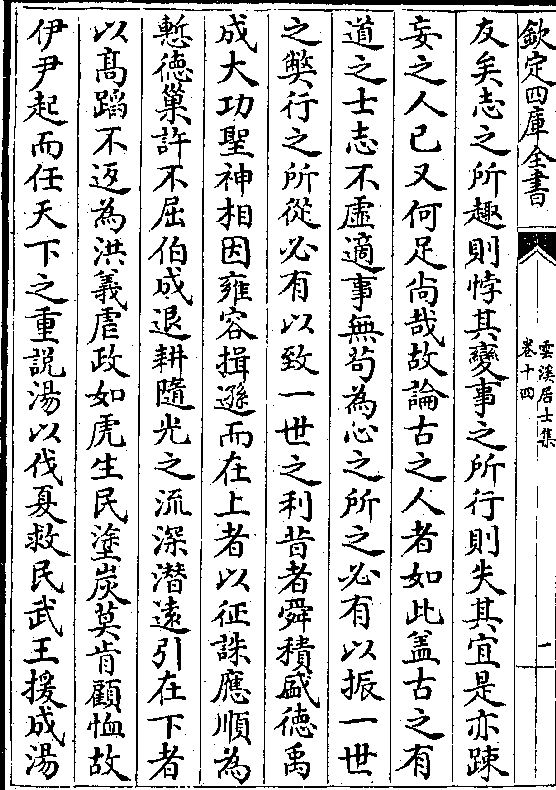 欽定四庫全書
雲溪居士集
卷十四
一
友矣志之所趣則悖其變事之所行則失其宜是亦踈
妄之人已又何足尚哉故論古之人者如此蓋古之有
道之士志不虛適事無茍為心之所之必有以振一世
之弊行之所從必有以致一世之利昔者舜積盛德禹
成大功聖神相因雍容揖遜而在上者以征誅應順為
慙德巢許不屈伯成退耕隨光之流深潛遠引在下者
以髙蹈不返為洪義虐政如虎生民塗炭莫肯顧恤故
伊尹起而任天下之重說湯以伐夏救民武王援成湯